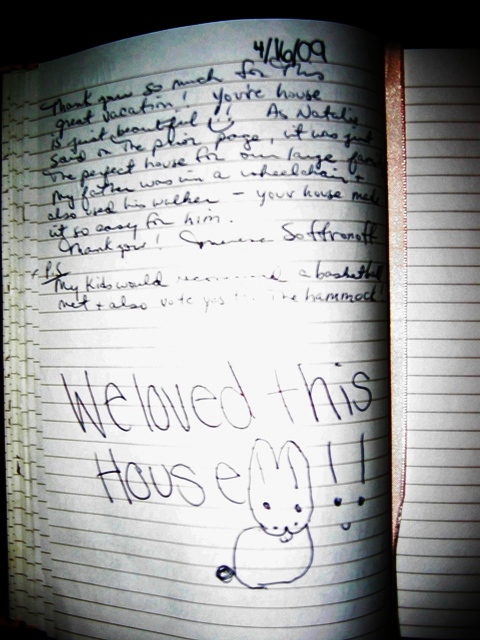 4/16/09
Thank you so much for this
great vacation! You're house
is just beautiful! As Nataly
said on the prior page, it was just
the perfect house for our large
My father was in a wheelchair
also used his walker - your house made
it so easy for him.
Thank you! Soffronoff
P.S.
My kids would recommend a basketball
net + also vote yes the hammock!
We loved this
House!!